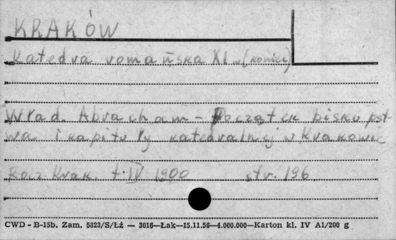 KRAKÓW
Katedra romańska XI w (koniec)
Wład. Abracham - Początek biskupst
wa i kapituły katedralnej w Krakowie
Rocz. Krak. t. IV 1900 str. 196
CWD - B-15b. Zam. 5823/S/Łż — 3016—Łak—15.11.56—4.000.000—Karton kl. IV A1/200 g